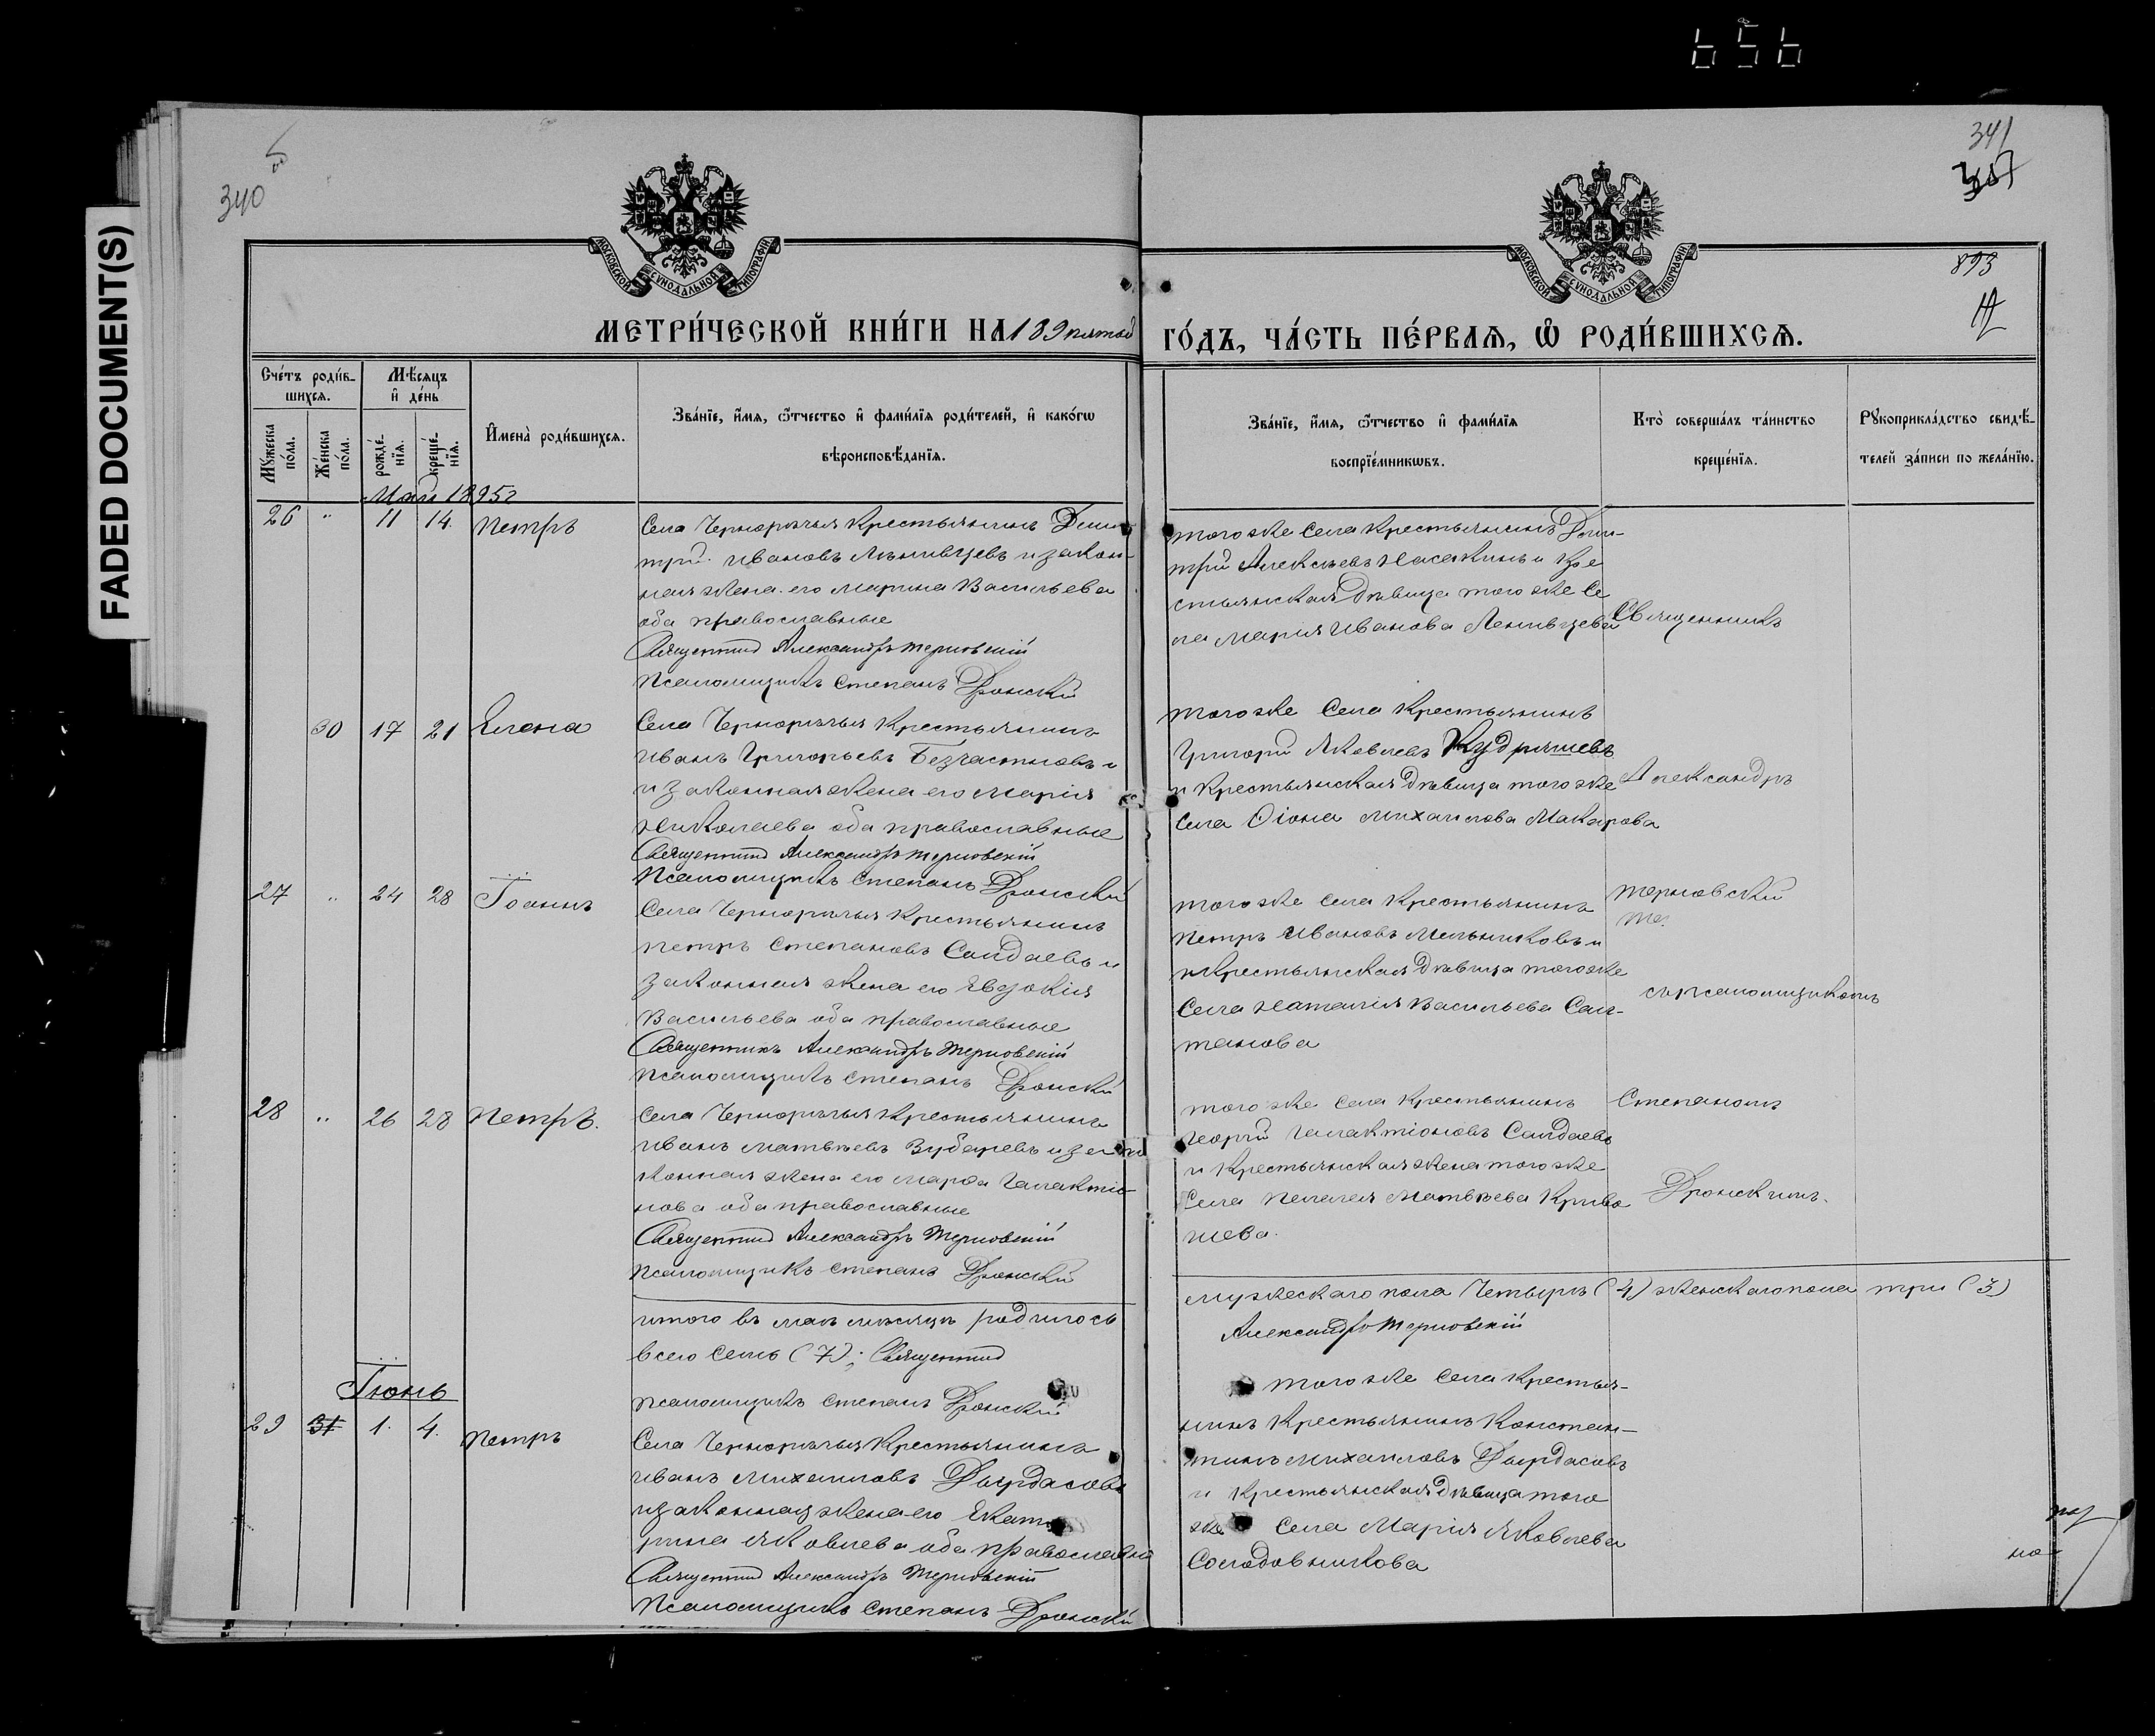 656
FADED DOCUMENT(S)
5
340
341
357
893
МОСКОВСКОЙ СѴНОДАЛЬНОЙ ТИПОГРАФІИ
МОСКОВСКОЙ СѴНОДАЛЬНОЙ ТИПОГРАФІИ
МЕТРИ́ЧЕСКОЙ КНИ́ГИ НА 189пятой ГО́ДЪ, ЧА́СТЬ ПЕ́РВАѦ, Ѡ҆ РОДИ́ВШИХСѦ.
Сче́тъ роди́в-
шихсѧ.
Мꙋ́жеска по́ла.
Же́нска по́ла.
Мѣ́сѧцъ
и҆ де́нь
рожде́-
нїѧ.
креще́-
нїѧ.
И҆мена̀ роди́вшихсѧ.
Зва́нїе, и҆́мѧ, ѻ҆́тчество и҆ фами́лїѧ роди́телей, и҆ како́гѡ
вѣроисповѣ́данїѧ.
Зва́нїе, и҆́мѧ, ѻ҆́тчество и҆ фами́лїѧ
воспрїе́мникѡвъ.
Кто̀ соверша́лъ та́инство
креще́нїѧ.
Рꙋкоприкла́дство свидѣ́-
телей за́писи по жела́нїю.
Май 1895г
26 " 11 14. Петръ
Села Чернорѣчья Крестьянинъ Дми
трій Ивановъ Лѣнивцевъ и закон-
ная жена его Марина Васильева
оба православные
Священникъ Александръ Терновскій
Псаломщикъ Степанъ Дронскій
того же села Крестьянинъ Дми-
трій Алексѣевъ Насакинъ и Кре
стьянская дѣвица того же се
ла Марія Иванова Ленивцева
Священникъ
30 17 21 Елена
Села Чернорѣчья Крестьянинъ
Иванъ Григорьевъ Безчастновъ и
и законная жена его Марія
Николаева оба православные
Священникъ Александръ Терновскій
Псаломщикъ Степанъ Дронскій
того же села Крестьянинъ
Григорій Яковлевъ Кудряшевъ
и Крестьянская дѣвица того же
села Ѳіона Михаилова Макарова
Александръ
27 " 24 28 Іоаннъ
Села Чернорѣчья Крестьянинъ
Петръ Степановъ Саидаевъ и
законная жена его Евдокія
Васильева оба православные
Священникъ Александръ Терновскій
Псаломщикъ Степанъ Дронскій
того же села Крестьянинъ
Петръ Ивановъ Мельниковъ и
и Крестьянская дѣвица того же
села Наталія Васильева Сал-
танова
Терновскій
Те.
съ псаломщикомъ
28 " 26 28 Петръ.
Села Чернорѣчья Крестьянинъ
Иванъ Матвѣевъ Зубаревъ и за
конная жена его Марѳа Галактіо-
нова оба православные
Священникъ Александръ Терновскій
Псаломщикъ Степанъ Дронскій
того же села Крестьянинъ
Георгій Галактіоновъ Саидаевъ
и Крестьянская жена того же
села Пелагея Матвѣева Криво
шева.
Степаномъ
Дронскимъ.
итого въ маѣ мѣсяцѣ родилось
всего семь (7); Священникъ
псаломщикъ Степанъ Дронскій
мужескаго пола Четыре (4) женскаго пола три (3)
Александръ Терновскій
Іюнь
29 31 1. 4. Петръ
Села Чернорѣчья Крестьянинъ
Иванъ Михаиловъ Дырдасовъ
и законная жена его Екате
рина Яковлева оба православные
Священникъ Александръ Терновскій
Псаломщикъ Степанъ Дронскій
того же села Крестья-
нинъ Крестьянинъ Констан-
тинъ Михаиловъ Дырдасовъ
и Крестьянская дѣвица того
же села Марія Яковлева
Солодовникова